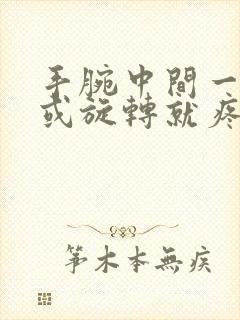 手腕中間一
或旋轉就疼
笫木本無疾